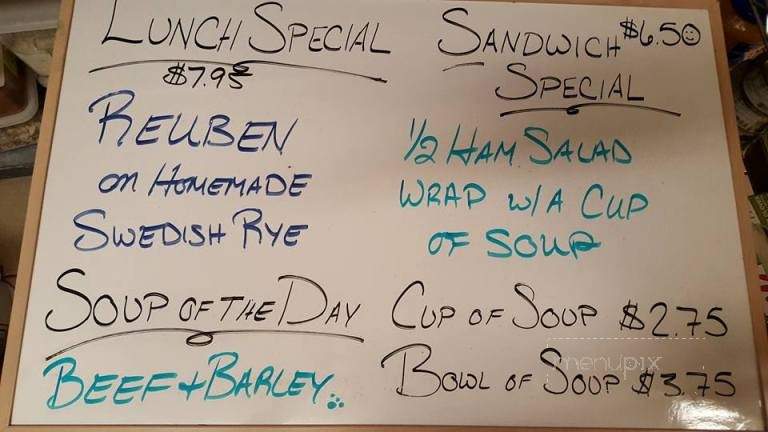 LUNCH SPECIAL
$7.95
REUBEN
ON HOMEMADE
SWEDISH RYE
SANDWICH $6.50
SPECIAL
1/2 HAM SALAD
WRAP W/A CUP
OF SOUP
SOUP OF THE DAY
BEEF + BARLEY
CUP OF SOUP $2.75
BOWL OF SOUP $3.75
menupix